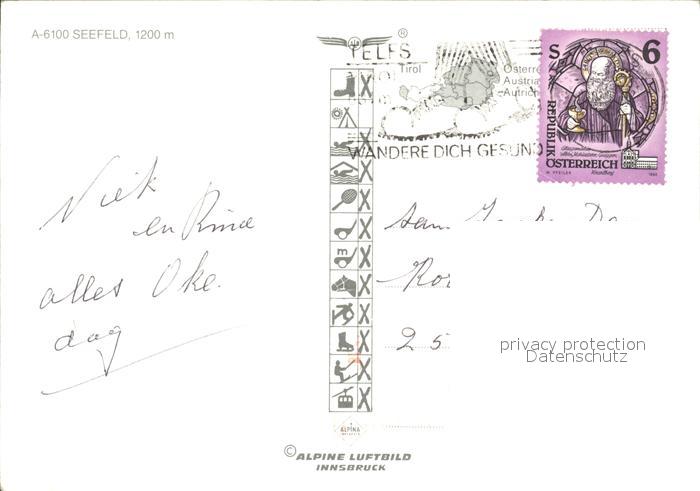 A-6100 SEEFELD, 1200 m
®
TELFS
Tirol
Österre
Austria
Autrich
WANDERE DICH GESUND
S 6
REPUBLIK
ÖSTERREICH
W. PFEILER 1993
Niek
en Rina
alles Oke.
dag
aan
Ko
25
m
privacy protection
Datenschutz
ALPINA
© ALPINE LUFTBILD
INNSBRUCK